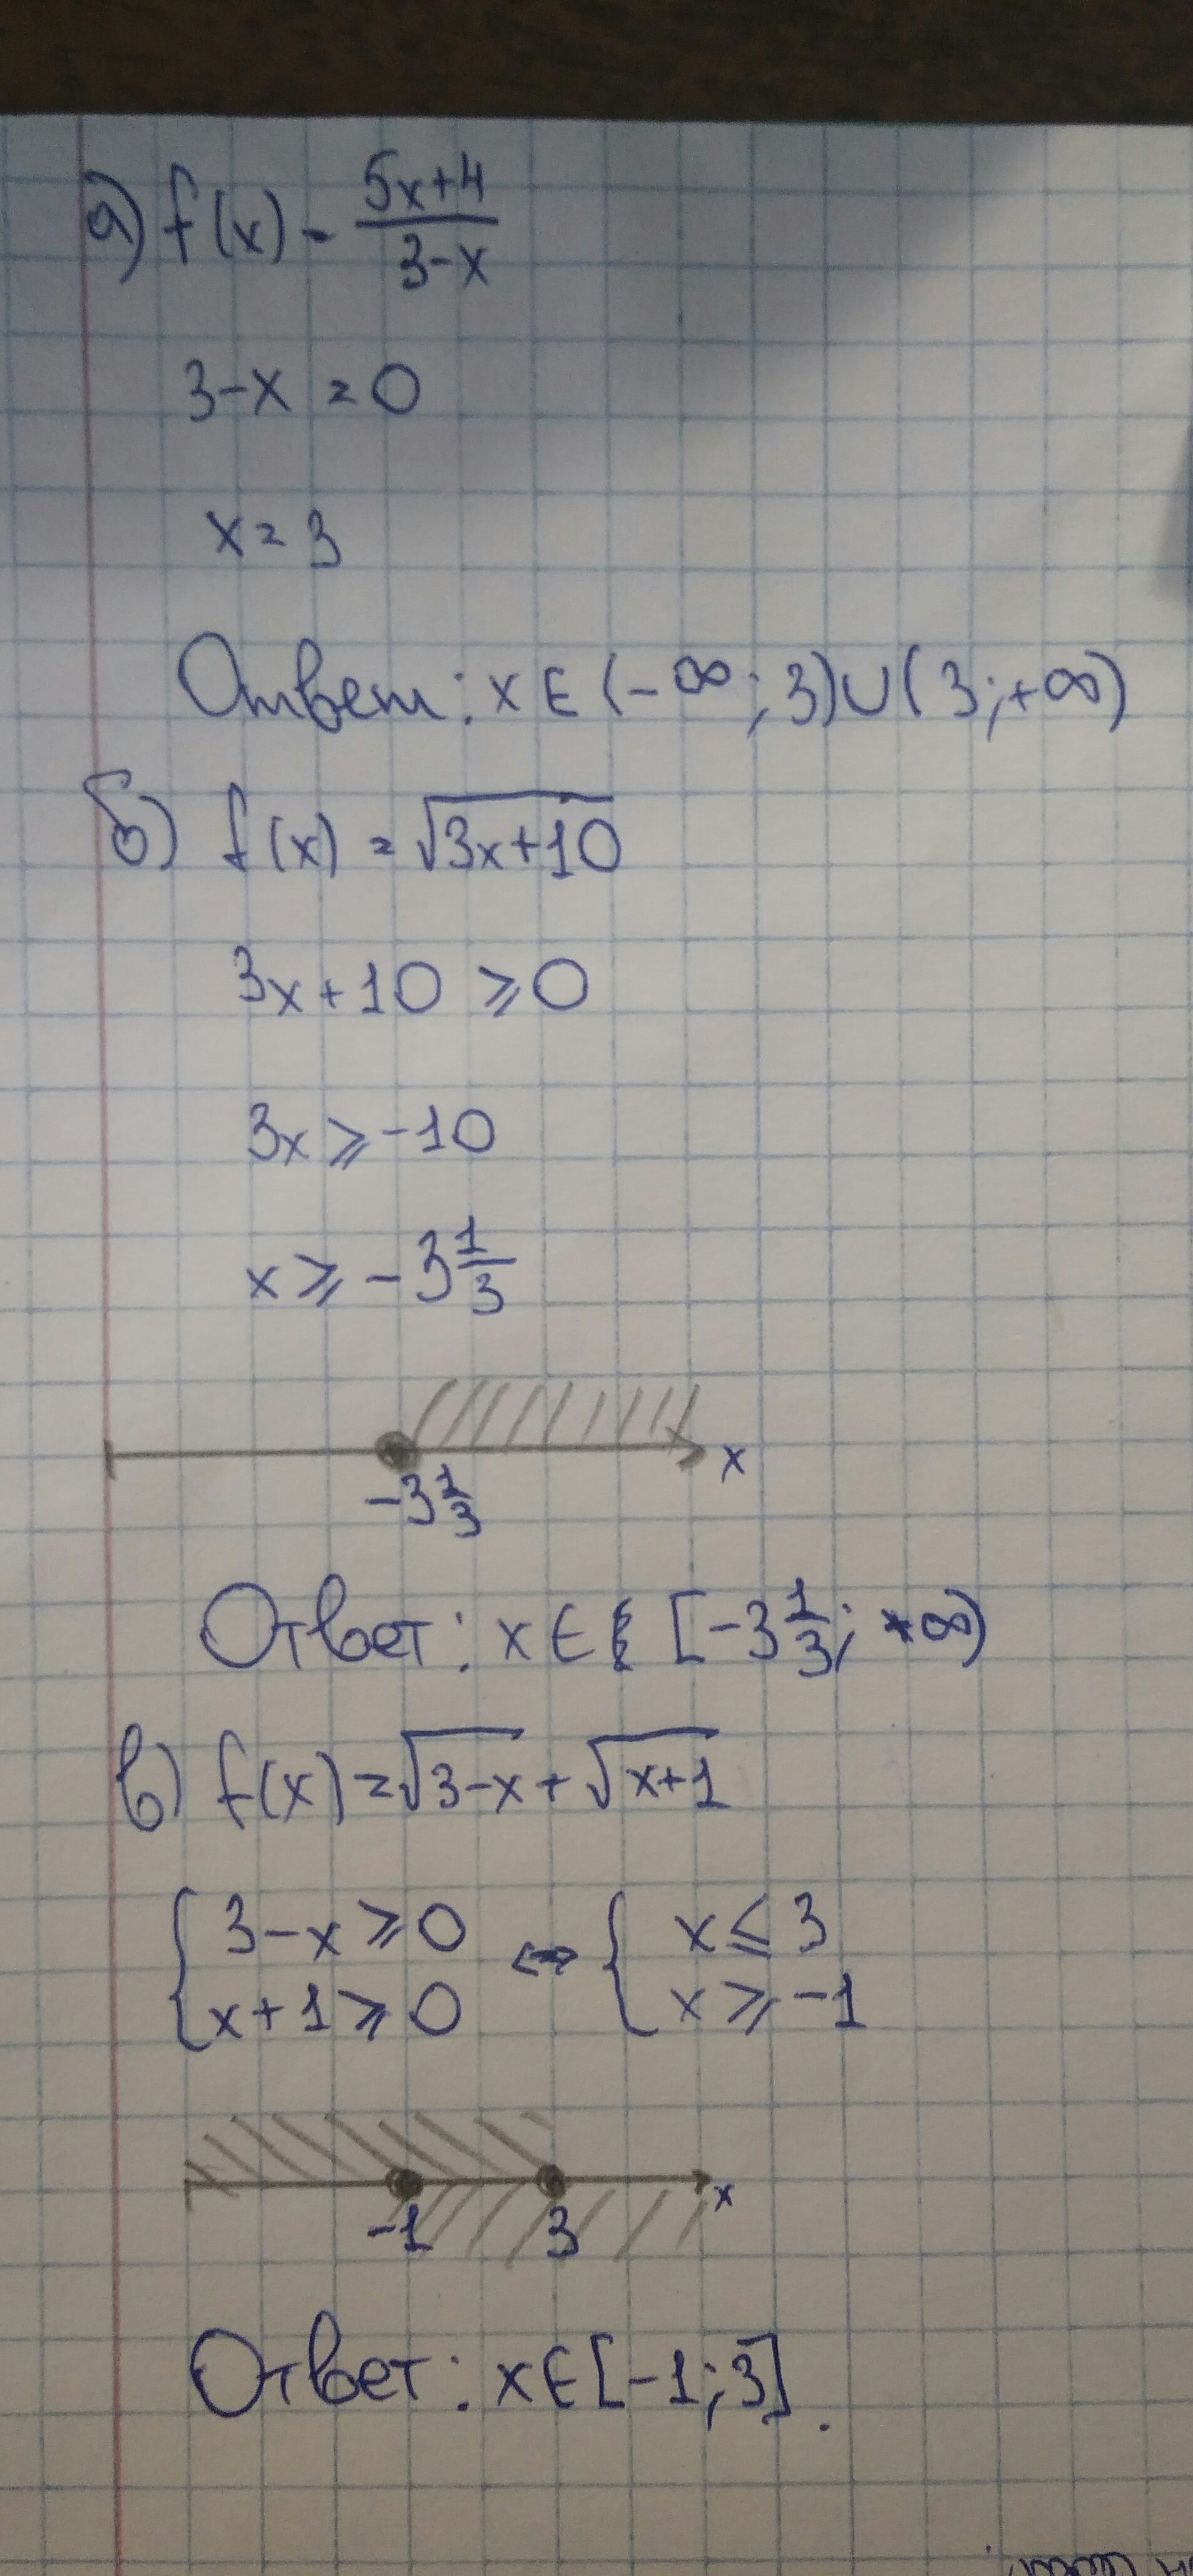 а) f(x) = (5x+4)/(3-x)
3-x = 0
x = 3
Ответ: x ∈ (-∞; 3)∪(3; +∞)
б) f(x) = √(3x+10)
3x+10 ⩾ 0
3x ⩾ -10
x ⩾ -3 1/3
-3 1/3 x
Ответ: x ∈ [-3 1/3; +∞)
в) f(x) = √(3-x) + √(x+1)
{ 3-x ⩾ 0 ↔ { x ⩽ 3
x+1 ⩾ 0 x ⩾ -1
-1 3 x
Ответ: x ∈ [-1; 3].